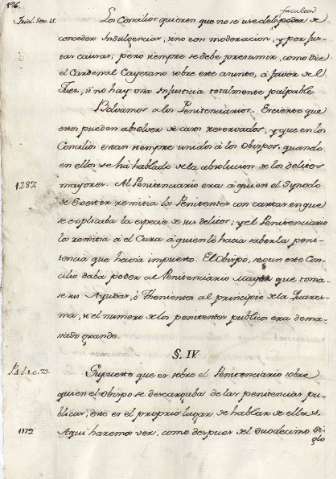 facultad
Los Concilios quieren que no se use del poder de
conceder Indulgencias, sino con moderacion, y por jus-
tas causas; pero siempre se debe presumir, como dice
el Cardenal Cayetano sobre este asunto, a favor de el
Juez, si no hay una Injusticia totalmente palpable
Bolvamos a los Penitenciarios. Es cierto que
estos pueden absolver de casos reservados, y que en los
Concilios estan siempre unidos a los Obispos, quando
en ellos se há hablado de la absolucion de los delitos
mayores. Al Penitenciario era á quien el Synodo
1287
de Excester remitia los Penitentes con cartas en que
se explicaba la especie de sus delitos; y el Penitenciario
lo remitia á el Cura á quien lo hacia saber la peni-
tencia que hacia impuesto. El Obispo, segun este Con-
cilio daba poder al Penitenciario mayor que toma-
se sus Ayudas, ó Thenientes al principio de la Quares-
ma, si el numero de los penitentes publicos era dema-
siado grande.
§. IV
Supuesto que es sobre el Penitenciario sobre
quien el obispo se descargaba de las penitencias pu-
blicas, este es el propio lugar de hablar de ellas.
1172
Aqui haremos ver, como despues del duodecimo Si-
glo